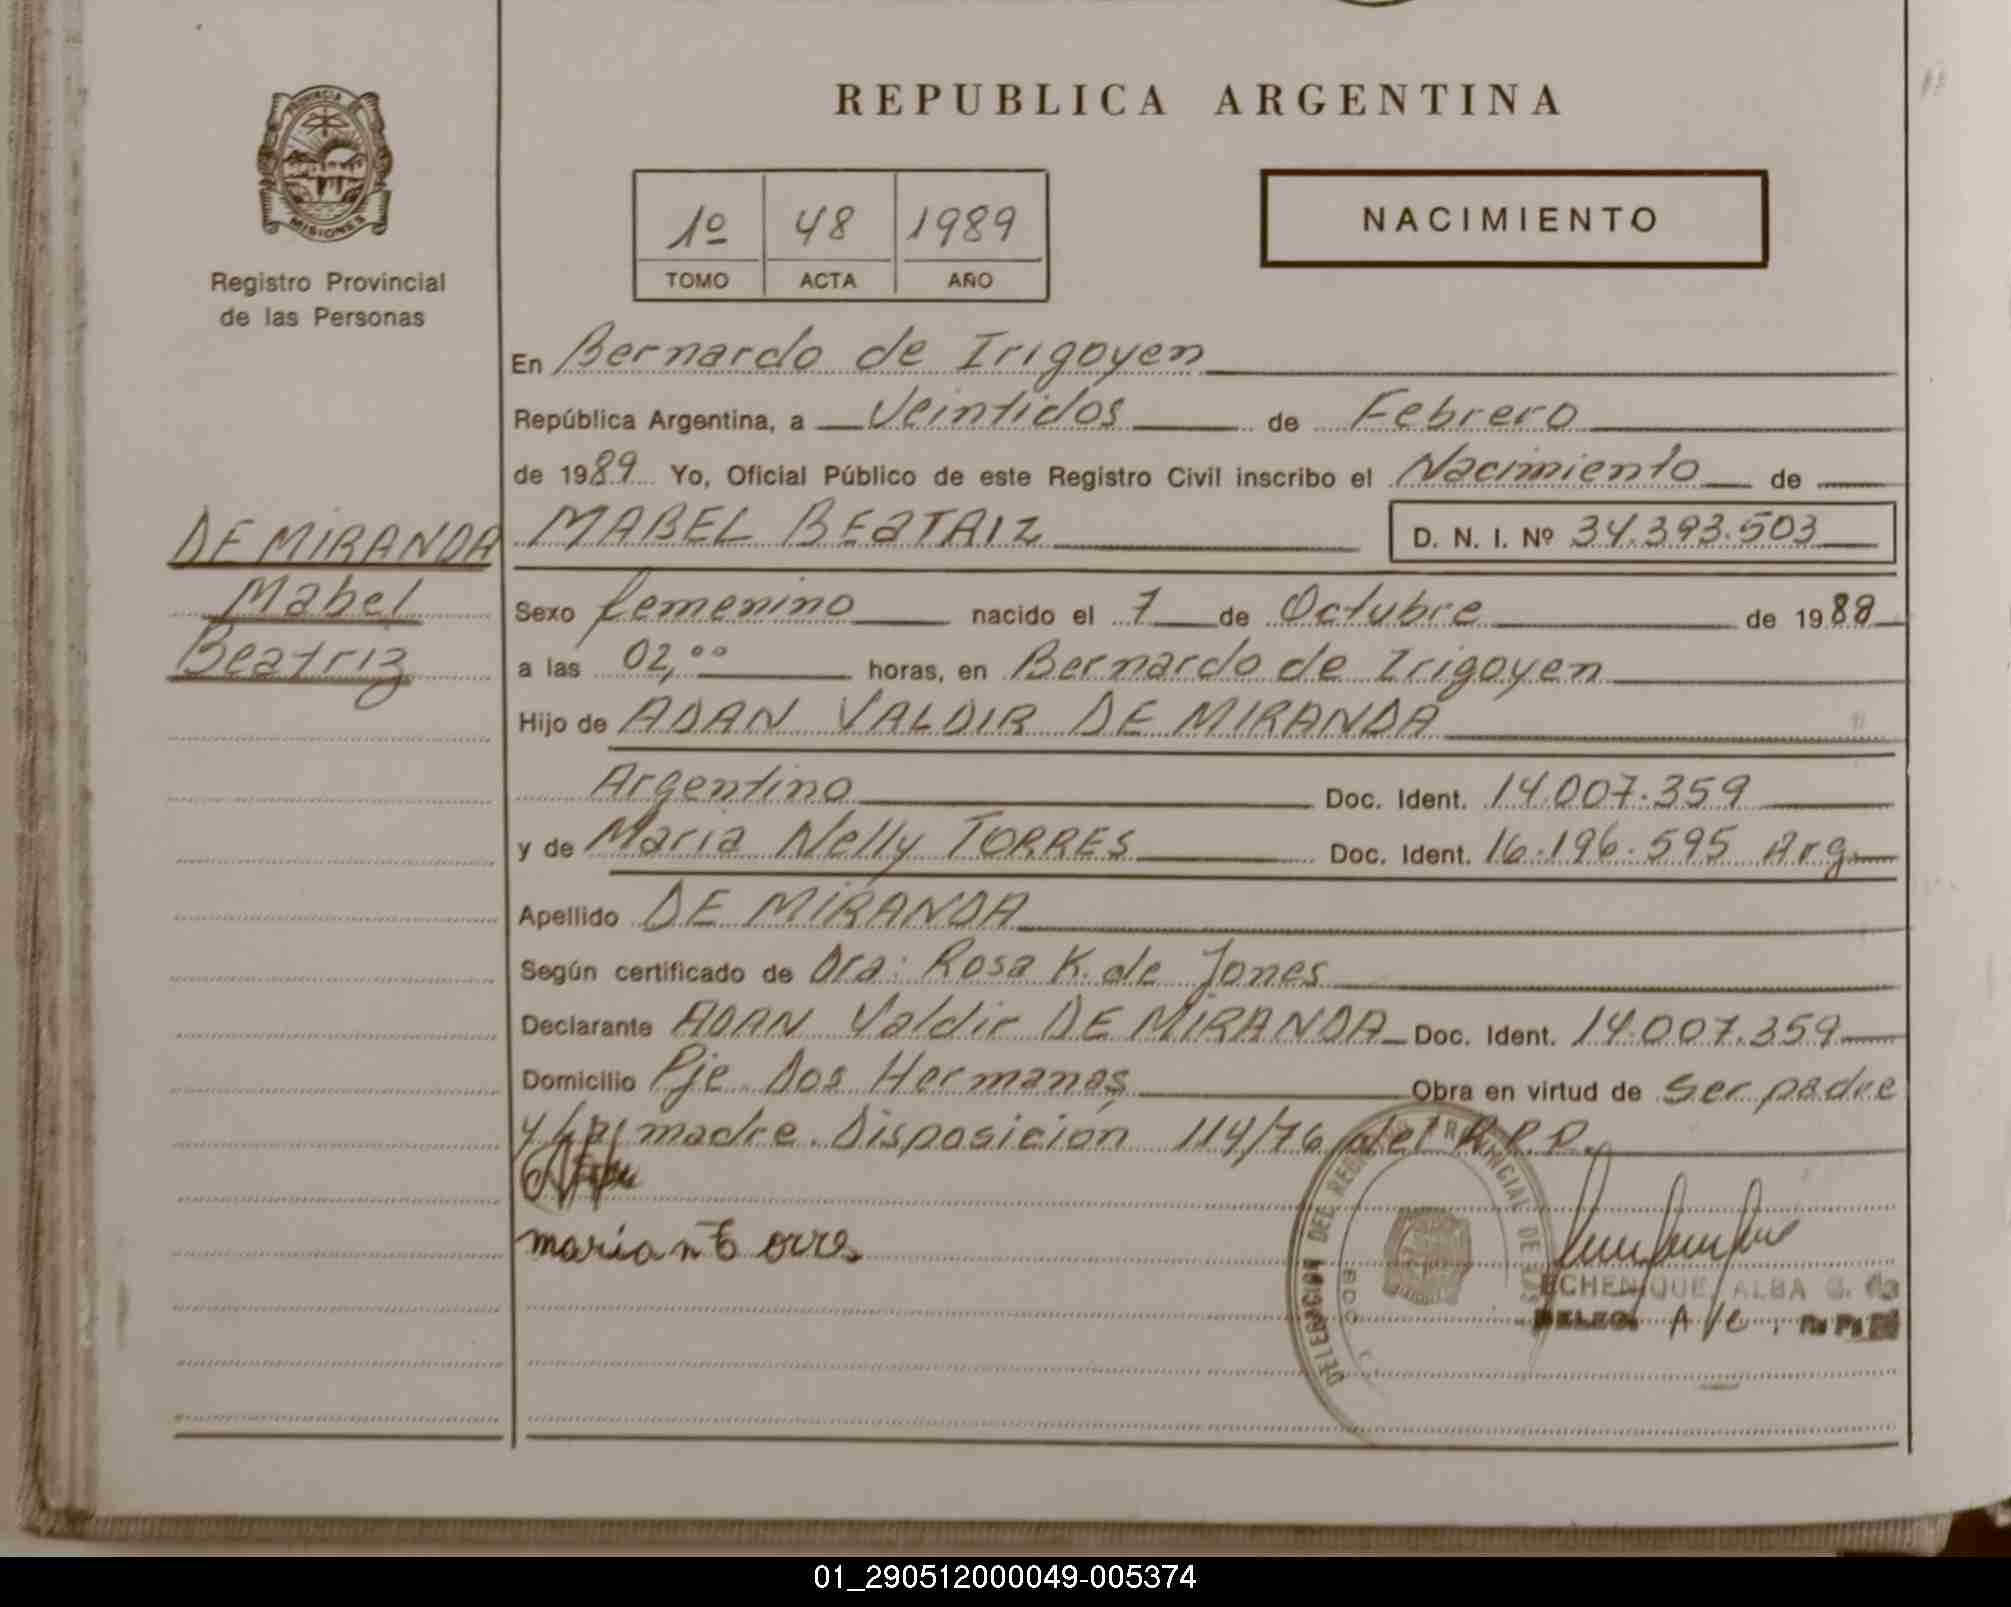 REPUBLICA ARGENTINA
PROVINCIA
MISIONES
Registro Provincial
de las Personas
1º 48 1989
TOMO ACTA AÑO
NACIMIENTO
En Bernardo de Irigoyen
República Argentina, a Veintidos de Febrero
de 1989 Yo, Oficial Público de este Registro Civil inscribo el Nacimiento de
DE MIRANDA
Mabel
Beatriz
MABEL BEATRIZ D. N. I. Nº 34.393.503
Sexo femenino nacido el 7 de Octubre de 1988
a las 02,ºº horas, en Bernardo de Irigoyen
Hijo de ADAN VALDIR DE MIRANDA
Argentino Doc. Ident. 14.007.359
y de Maria Nelly TORRES Doc. Ident. 16.196.595 Arg
Apellido DE MIRANDA
Según certificado de Dra: Rosa K. de Jones
Declarante ADAN Valdir DE MIRANDA Doc. Ident. 14.007.359
Domicilio Pje Dos Hermanas Obra en virtud de ser padre
y la madre. Disposición 114/76 del R.P.P.
maria n torres
DELEGACION DEL REGISTRO PROVINCIAL DE LAS
BDO
ECHENIQUE, ALBA G. de
DELEG. A/C. R.P.P.
01_290512000049-005374